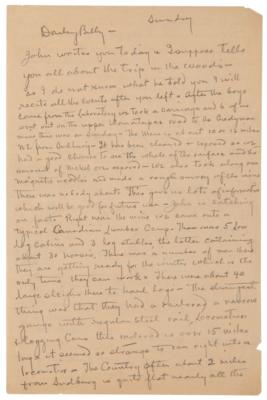 Sunday
Darling Billy —
John writes you today & I suppose tells
you all about the trip in the woods —
as I do not know what he told you I will
recite all the events after you left — After the boys
came from the laboratory we took a carriage and 6 of us
went out on the
mine there was on Sunday — The mine is at out 10 or 12 miles
NE from Sudbury — It has been cleaned & exposed so we
had a good chance to see the whole of the surface and the
amount of Nickel ore exposed — We also took along our
magnetic needles and made a rough survey of the mine
There was no body about. This gave us lots of information
which will be good for future use — John is catching
on fast. Right near the mine we came onto a
typical Canadian Lumber Camp. There was 5 low
log Cabins and 3 log stables, the latter containing
about 30 horses. There was a number of men there
they are getting ready for the winter, which is the
only time they can work — There was about 40
large sleighs there to haul logs — The strangest
thing was that they had a railroad a narrow
gauge with regular steel rail, locomotive
& logging Cars this railroad is over 15 miles
long it seemed so strange to run right into a
locomotive — The Country after about 2 miles
from Sudbury is quite flat nearly all the